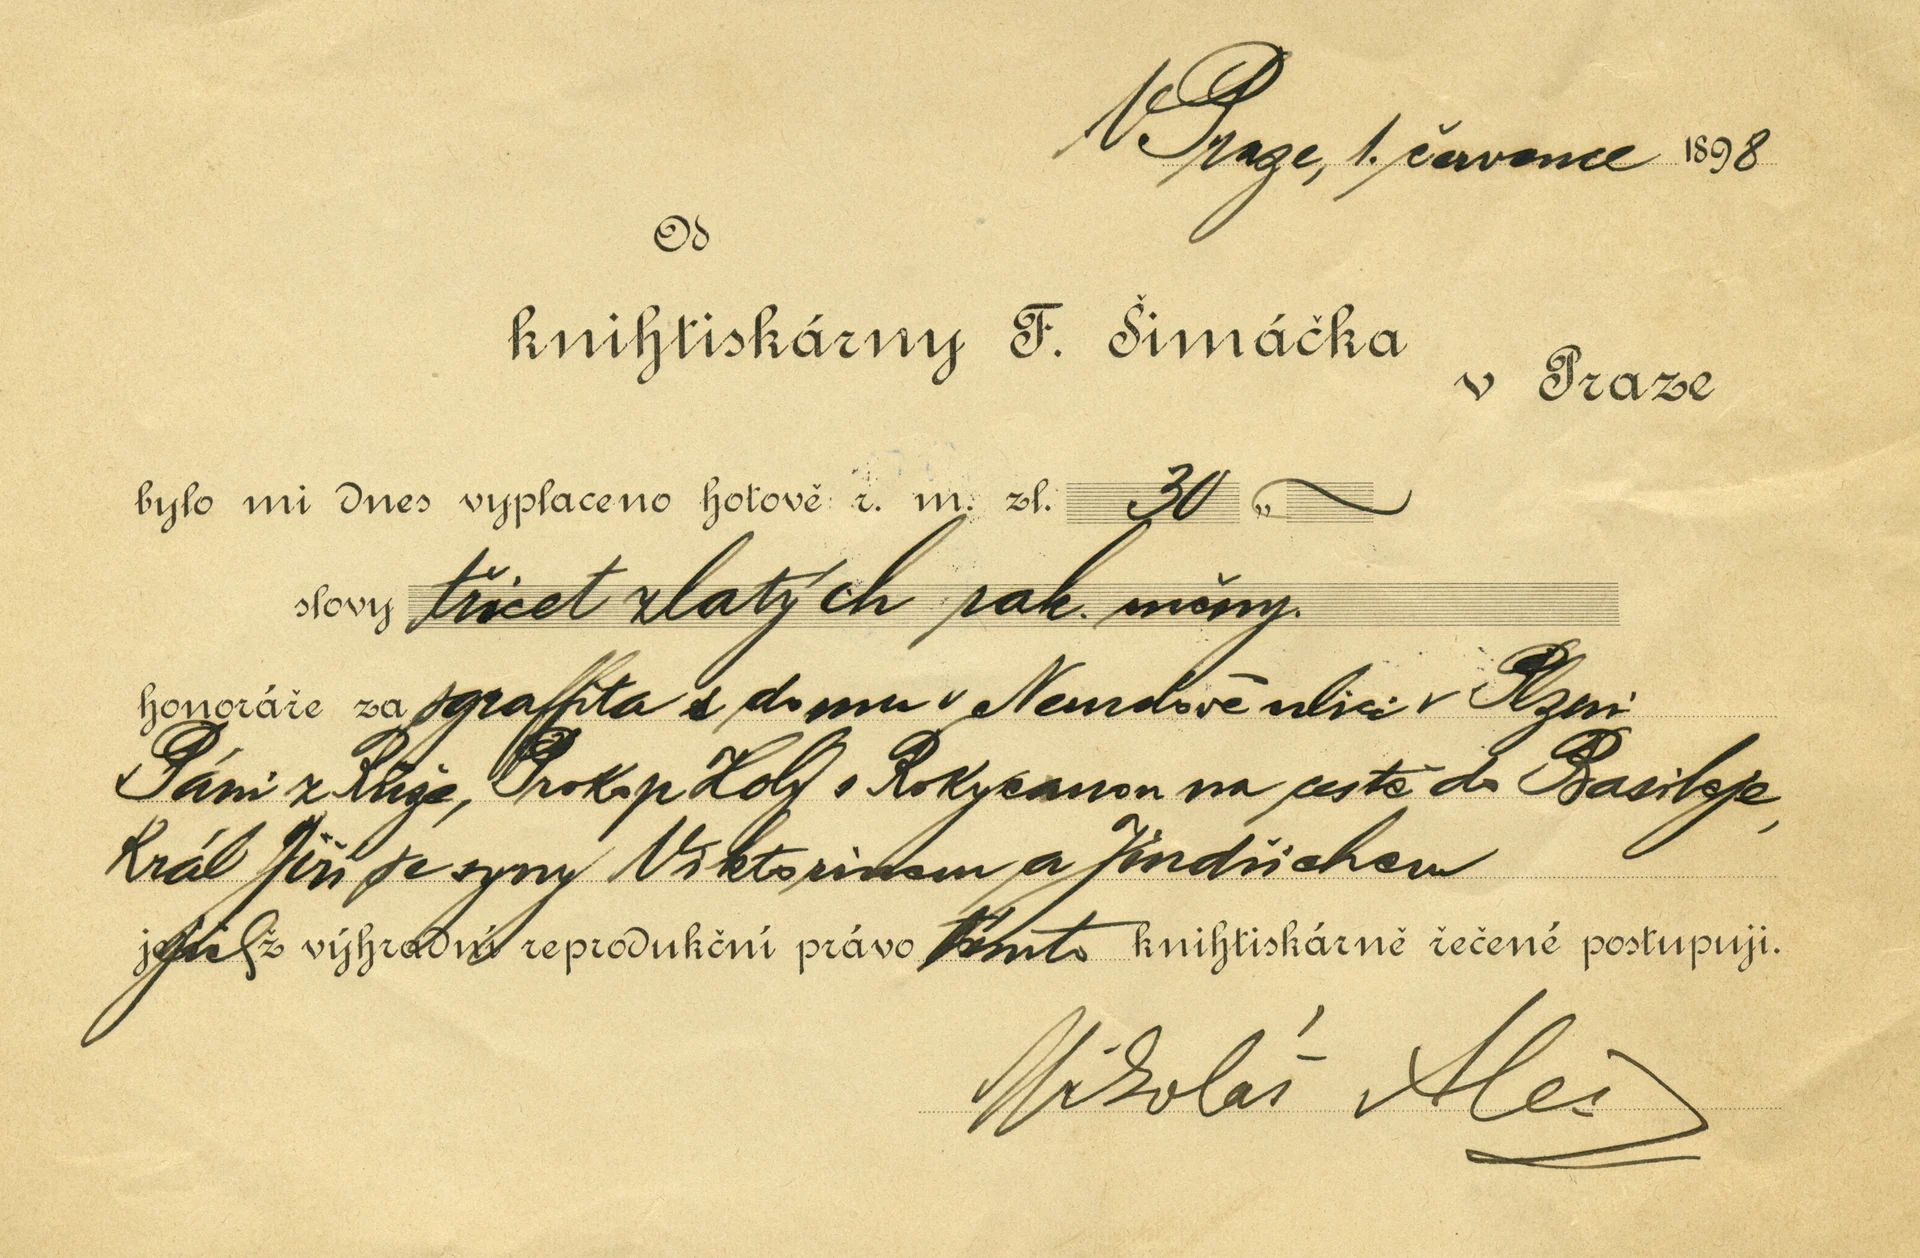 V Praze, 1. července 1898
Od
knihtiskárny F. Šimáčka
v Praze
bylo mi dnes vyplaceno hotově r. m. zl. 30 „
slovy třicet zlatých rak. měny.
honoráře za sgraffita s domu v Nerudově ulici v Plzni
Páni z Růže, Prokop Holý s Rokycanou na cestě do Basileje,
Král Jiří se syny Viktorinem a Jindřichem
jichž výhradní reprodukční právo tímto knihtiskárně řečené postupuji.
Mikoláš Aleš